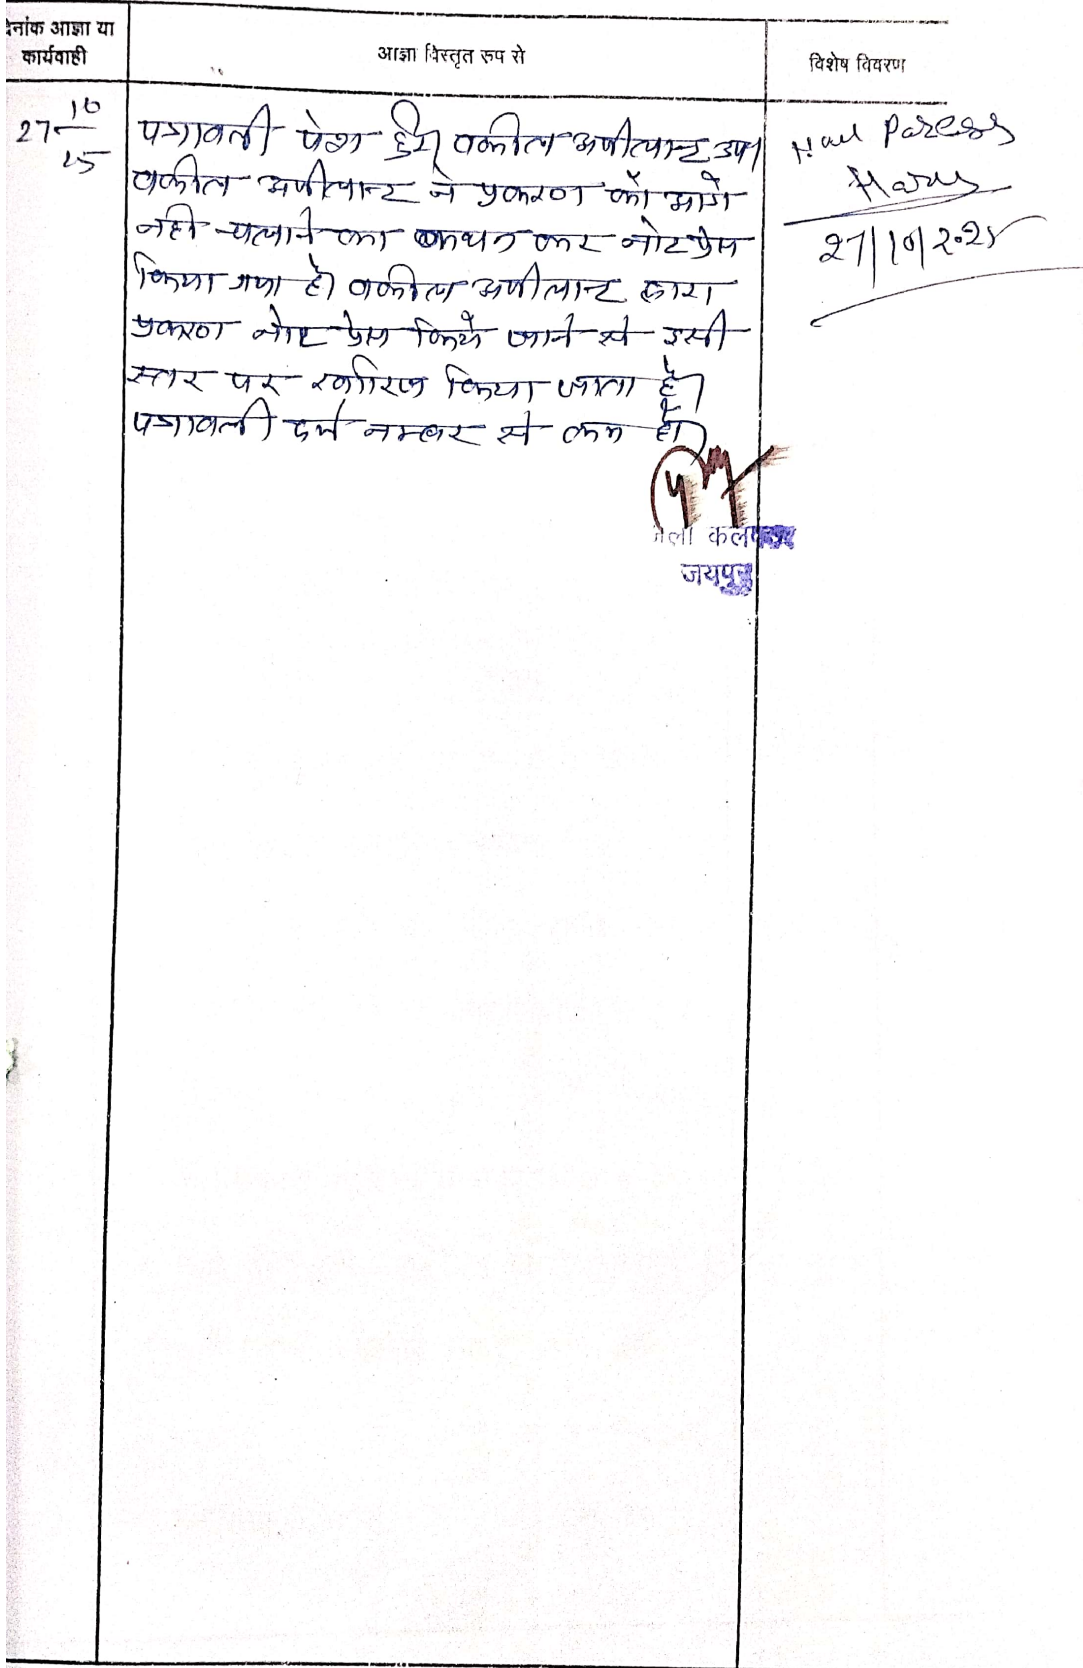 दिनांक आज्ञा या
कार्यवाही
आज्ञा विस्तृत रूप से
विशेष विवरण
27 10
25
पत्रावली पेश हुई। वकील अपीलान्ट उप।
वकील अपीलान्ट ने प्रकरण को आगे
नहीं चलाने का कथन कर नोट प्रेस
किया गया है। वकील अपीलान्ट द्वारा
प्रकरण नोट प्रेस किये जाने से इसी
स्तर पर खारिज किया जाता है।
पत्रावली दर्ज नम्बर से कम हो।
जिला कलक्टर
जयपुर
27/10/2025